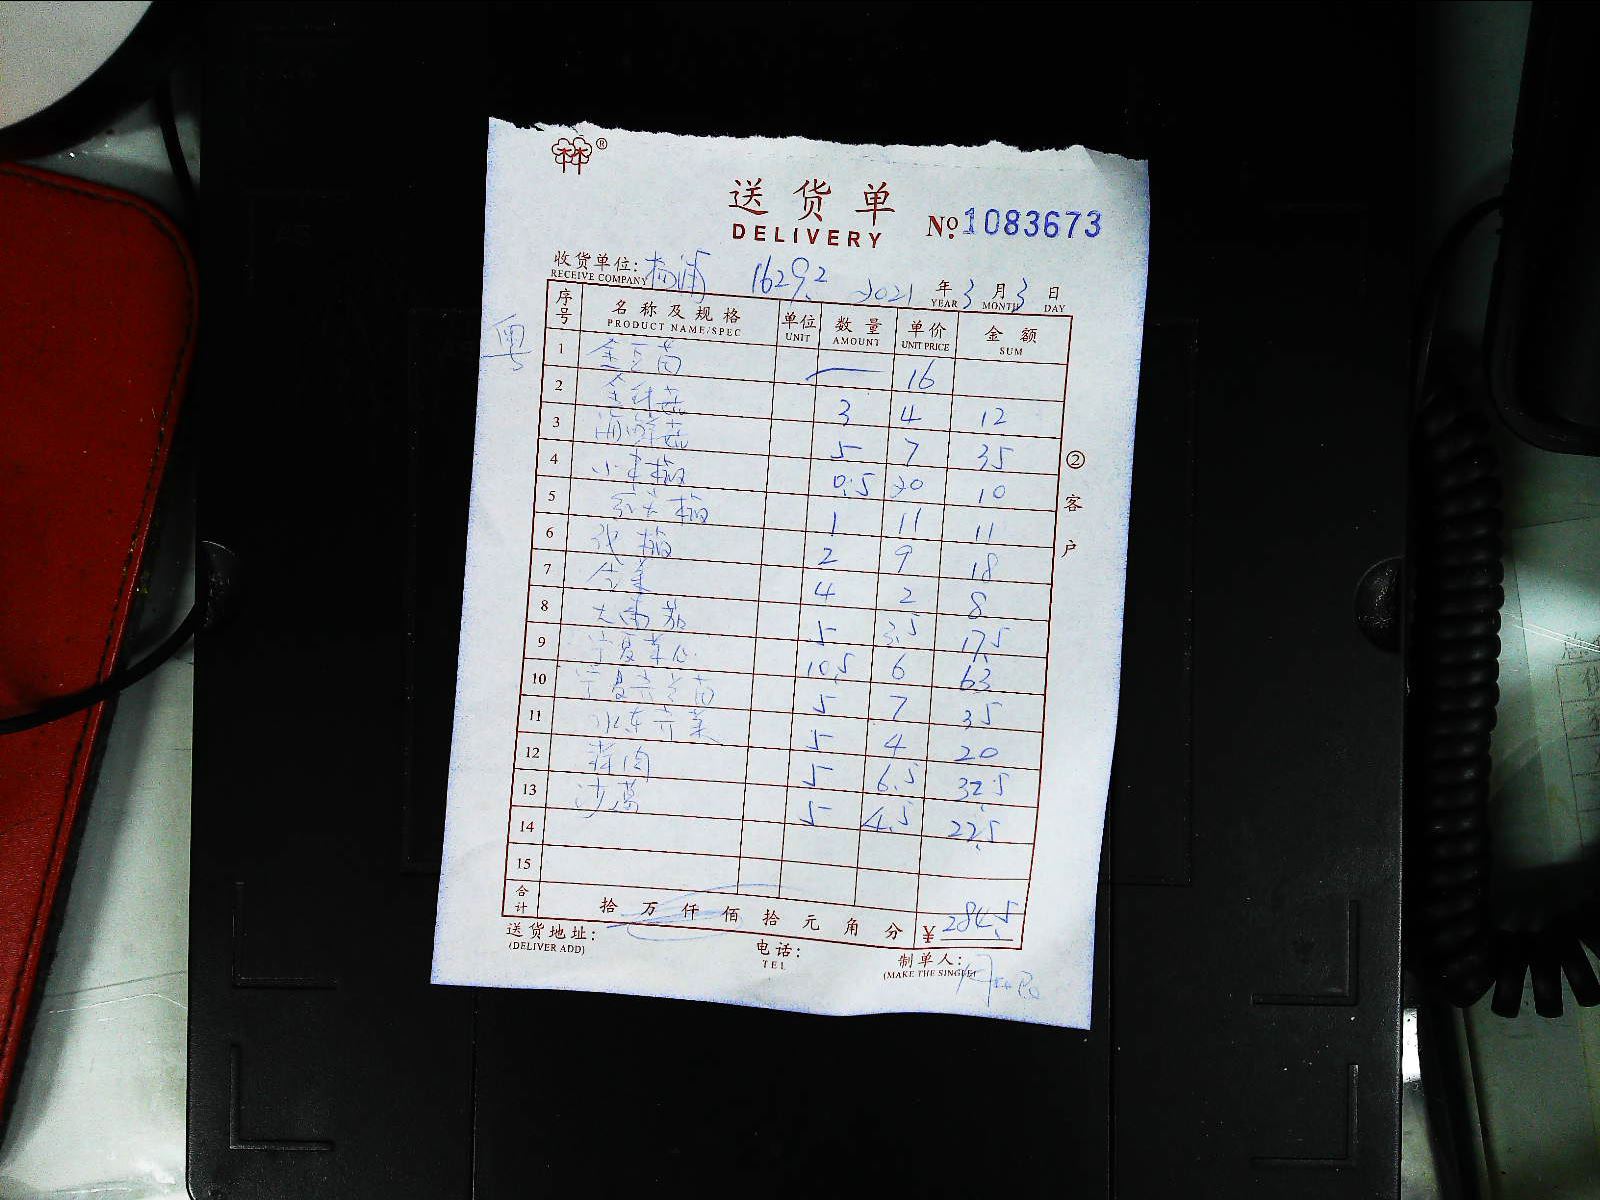 林®
送货单
DELIVERY
No. 1083673
收货单位: 杨浦 1629.2 2021 年 3 月 3 日
RECEIVE COMPANY YEAR MONTH DAY
粤
序号 名称及规格 单位 数量 单价 金额
PRODUCT NAME/SPEC UNIT AMOUNT UNIT PRICE SUM
1 金豆苗 — 16
2 金针菇 3 4 12
3 海鲜菇 5 7 35
4 小米椒 0.5 20 10
5 红尖椒 1 11 11
6 2 9 18
7 生菜 4 2 8
8 大番茄 5 3.5 17.5
9 宁夏菜心 10.5 6 63
10 宁夏芥兰苗 5 7 35
11 水东芥菜 5 4 20
12 蒜肉 5 6.5 32.5
13 沙葛 5 4.5 22.5
14
15
合计 拾 万 仟 佰 拾 元 角 分 ¥ 284.5
送货地址: 电话: 制单人:
(DELIVER ADD) TEL (MAKE THE SINGLE)
② 客户